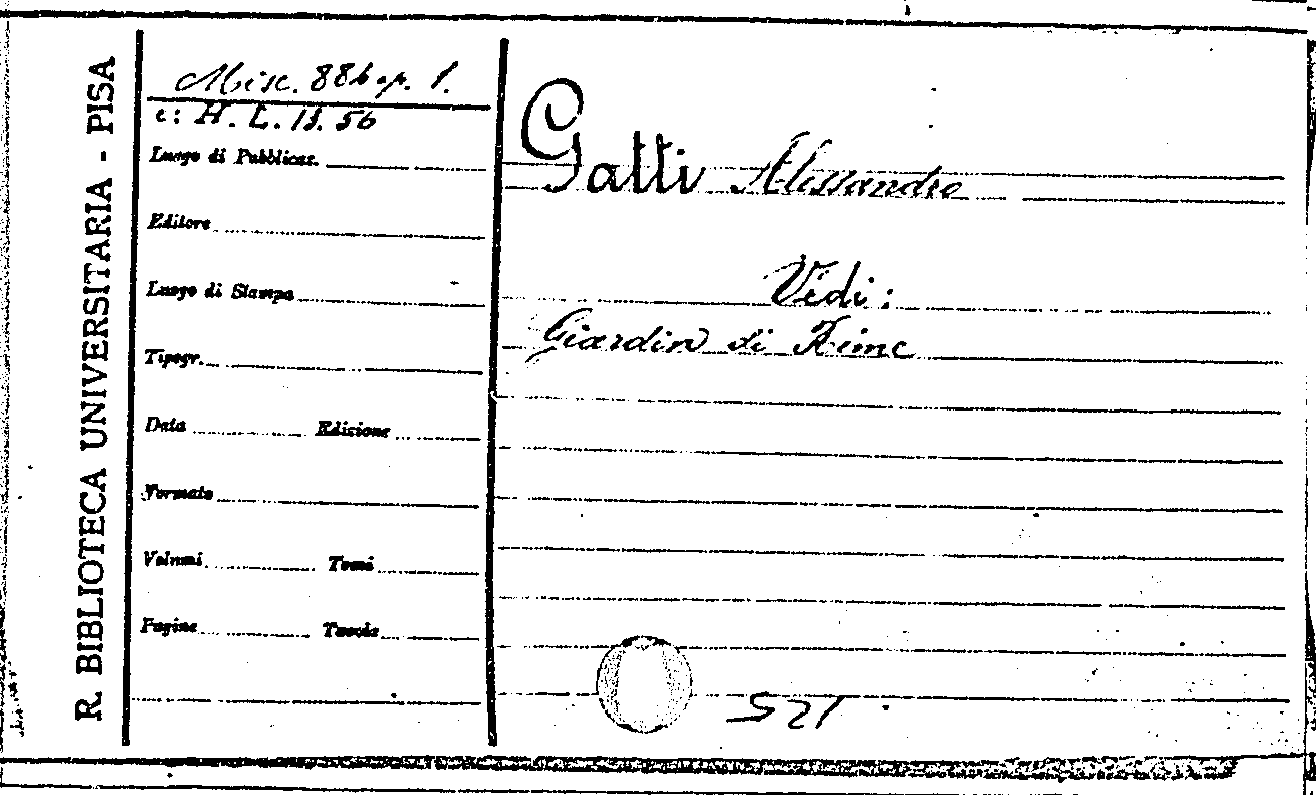 R. BIBLIOTECA UNIVERSITARIA - PISA
Misc. 886 op. 1.
e: H. L. 13. 56
Luogo di Pubblicaz.
Editore
Luogo di Stampa
Tipogr.
Data Edizione
Formato
Volumi Tomi
Pagine Tavole
Gatti Alessandro
Vedi:
Giardin di Rime
521